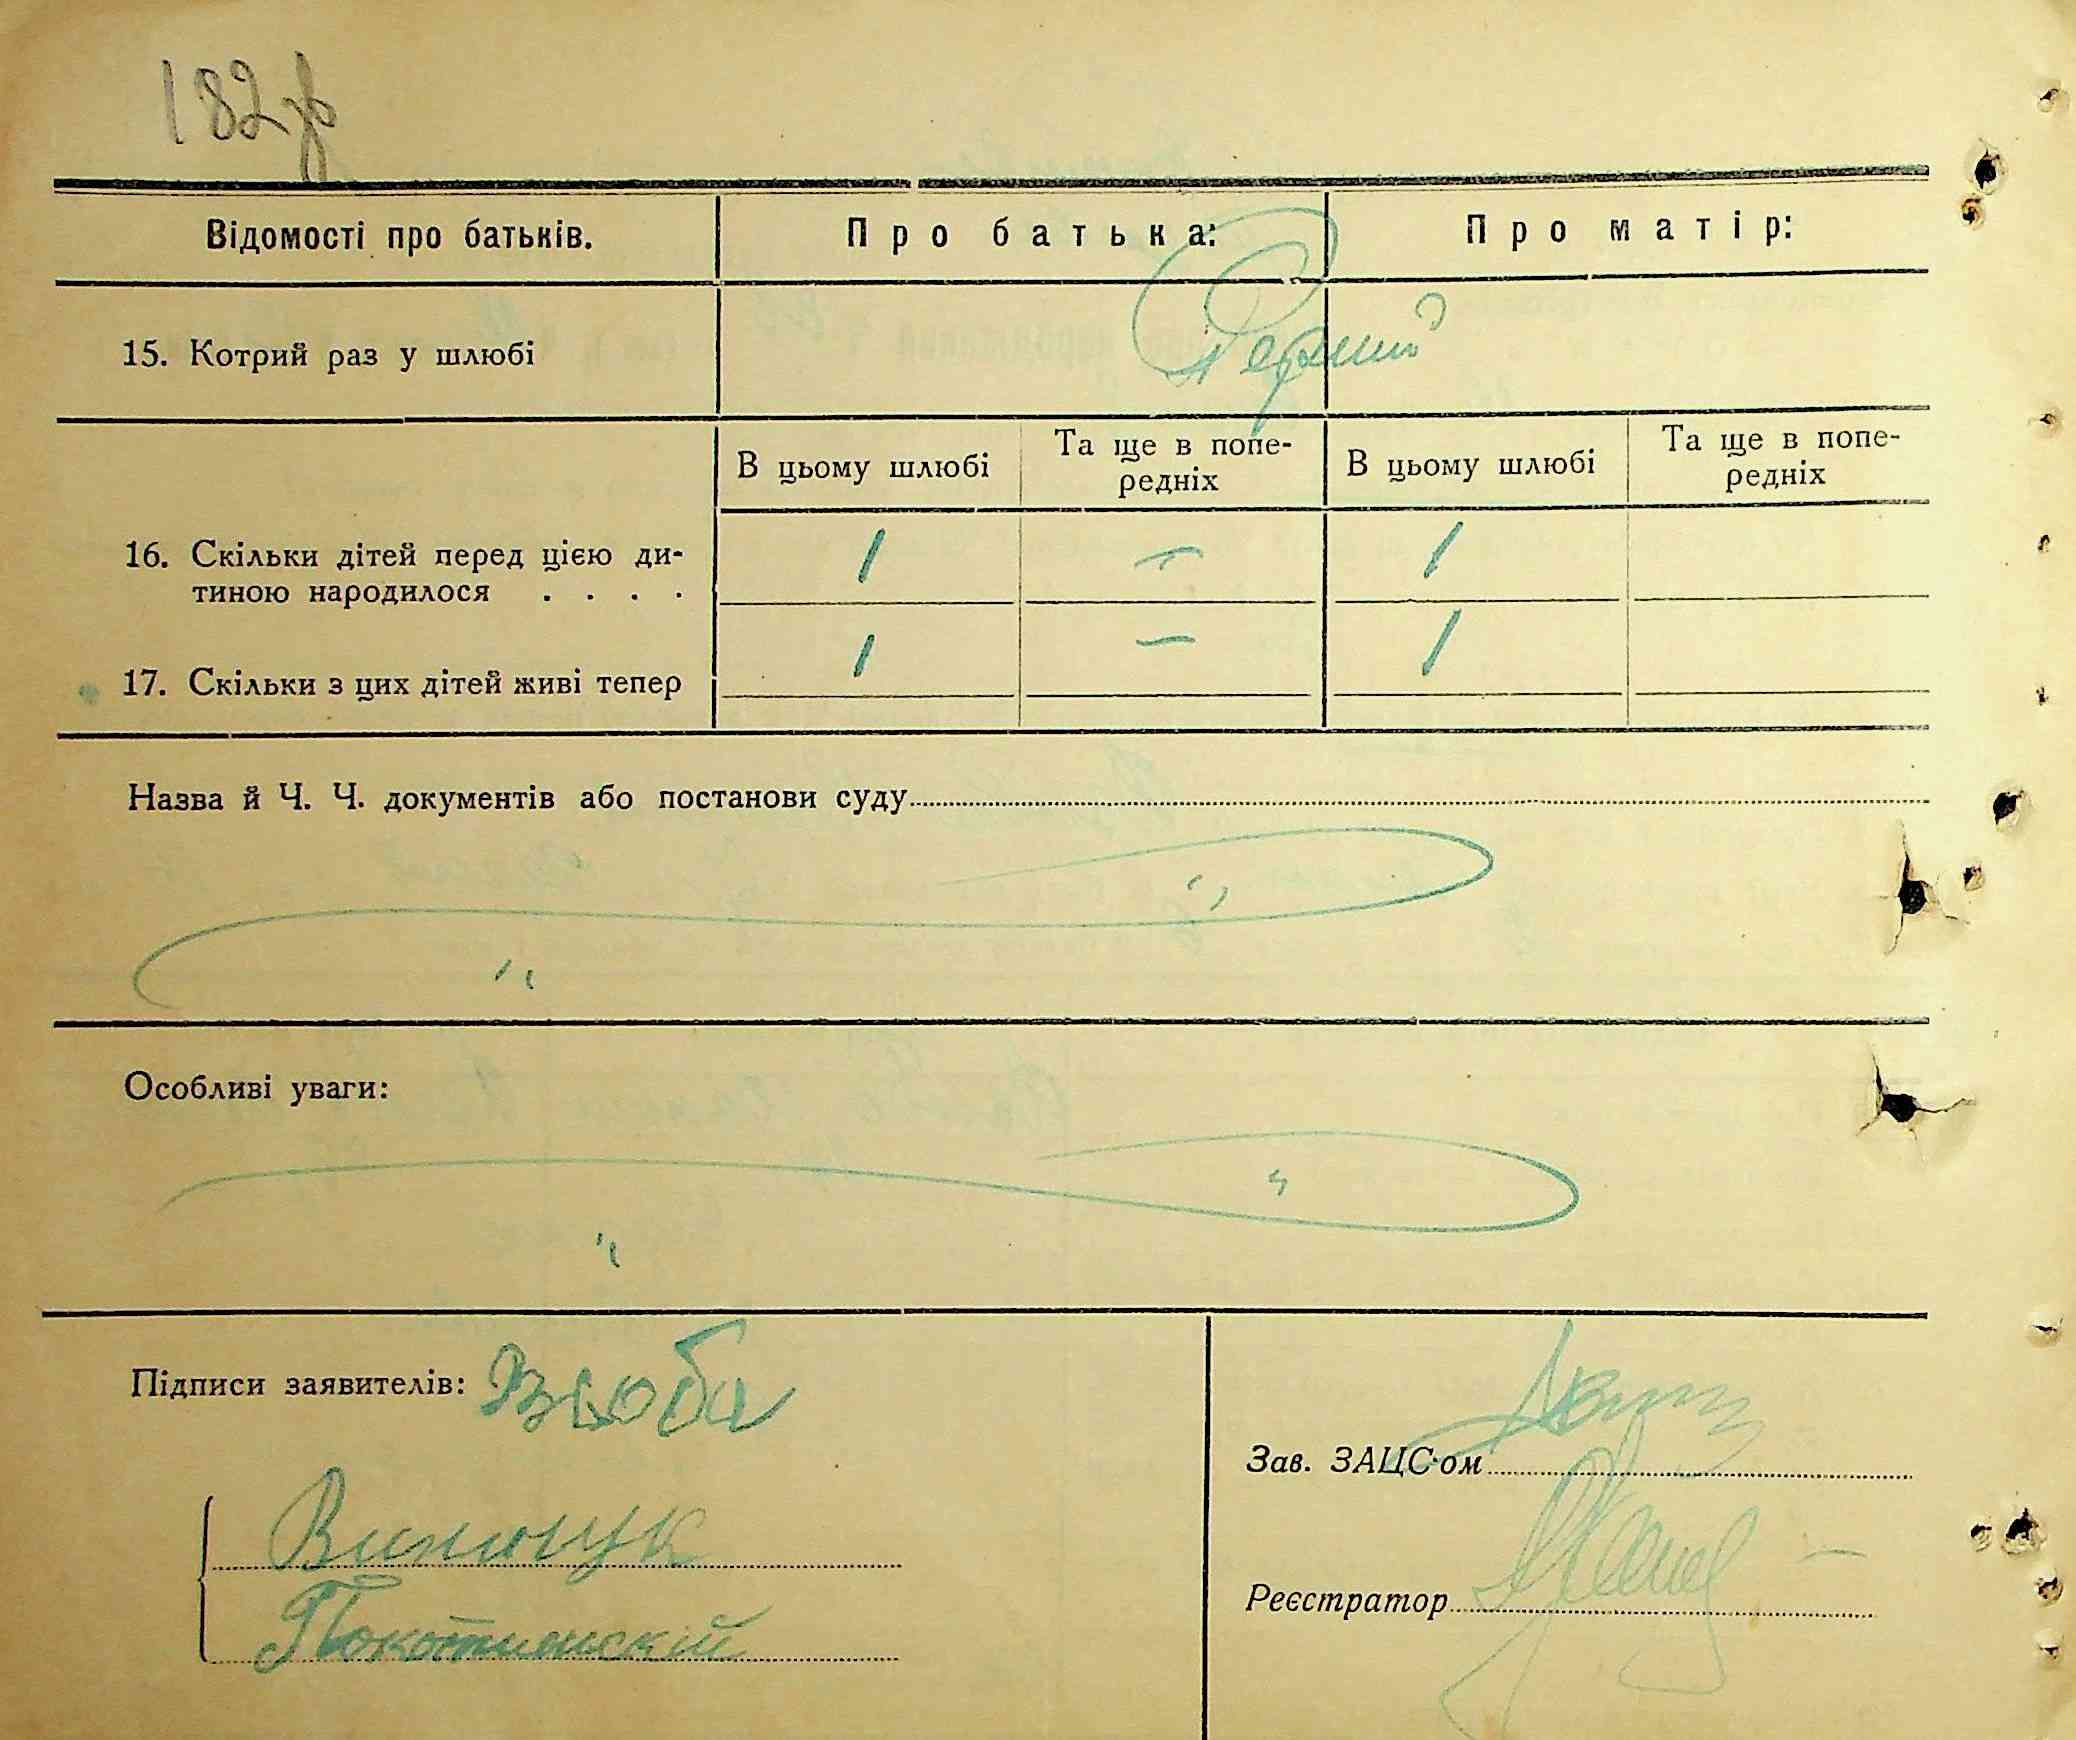 182зв
Відомості про батьків. Про батька: Про матір:
15. Котрий раз у шлюбі Перший
В цьому шлюбі Та ще в попе- В цьому шлюбі Та ще в попе-
редніх редніх
16. Скільки дітей перед цією ди- 1 - 1
тиною народилося . . . .
17. Скільки з цих дітей живі тепер 1 - 1
Назва й Ч. Ч. документів або постанови суду
Особливі уваги:
Підписи заявителів:
Зав. ЗАЦС·ом
Реєстратор